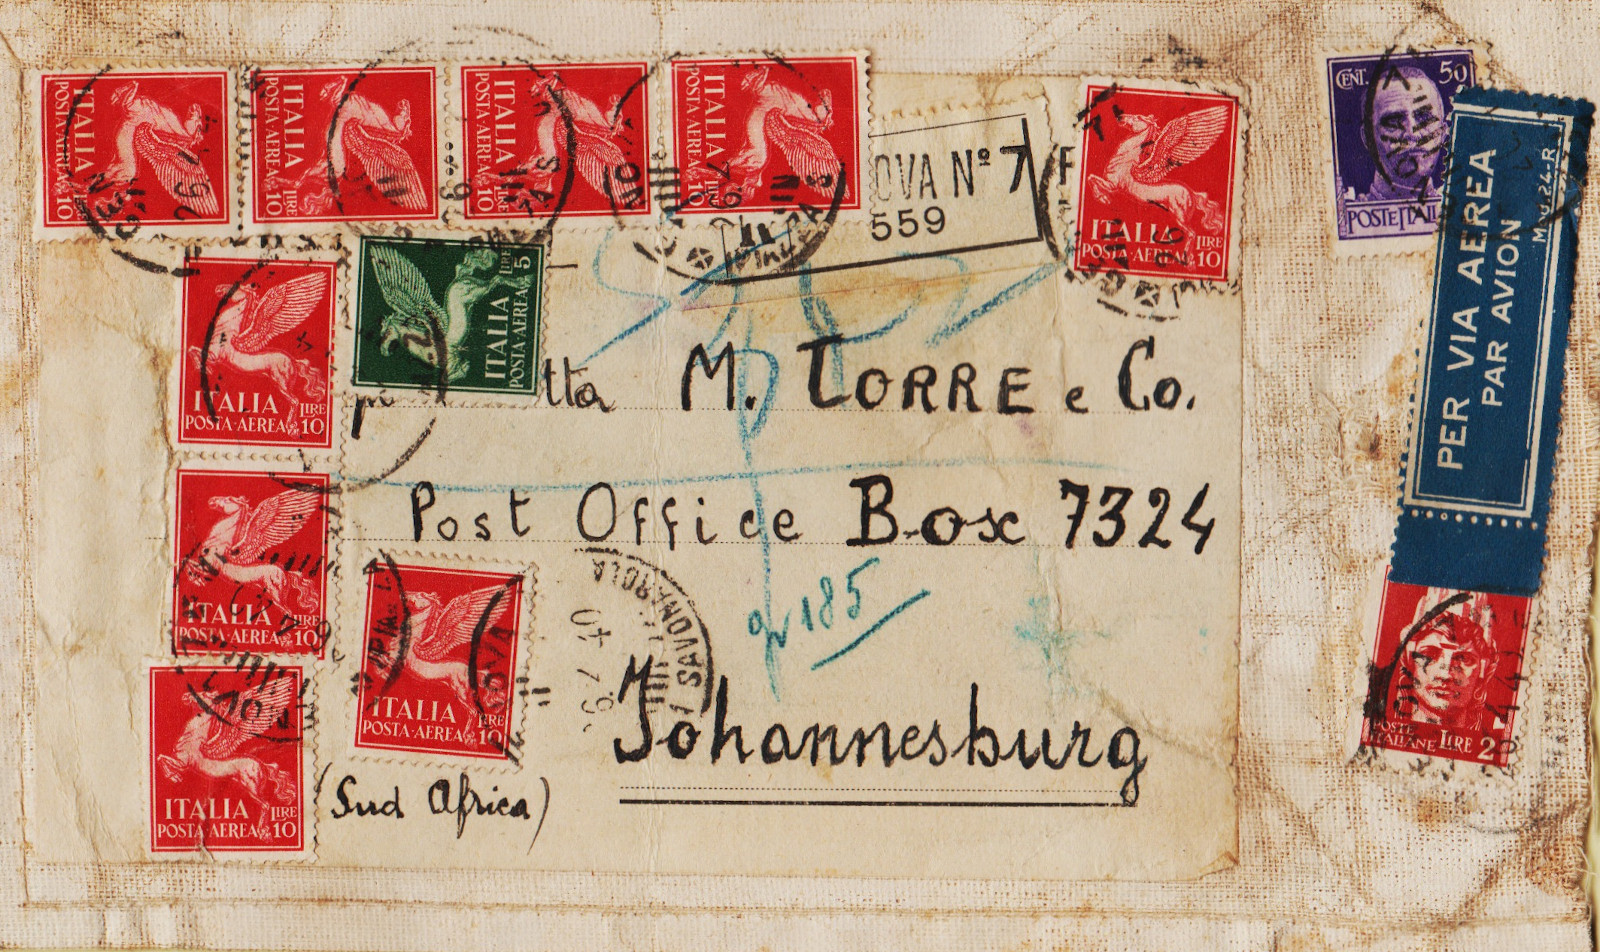 ITALIA
POSTA AEREA
LIRE
10
ITALIA
POSTA AEREA
LIRE
10
ITALIA
POSTA AEREA
LIRE
10
ITALIA
POSTA AEREA
LIRE
10
OVA Nº 7
559
ITALIA
POSTA-AEREA
LIRE
10
CENT. 50
POSTE ITAL
PER VIA AEREA
PAR AVION
Mod. 24-R
ITALIA
POSTA-AEREA
LIRE
10
ITALIA
POSTA-AEREA
LIRE
5
tta M. TORRE e Co.
Post Office Box 7324
gr 185
Johannesburg
(Sud Africa)
ITALIA
POSTA-AEREA
LIRE
10
ITALIA
POSTA-AEREA
LIRE
10
ITALIA
POSTA-AEREA
LIRE
10
SAVONAROLA
POSTE
ITALIANE
LIRE 2